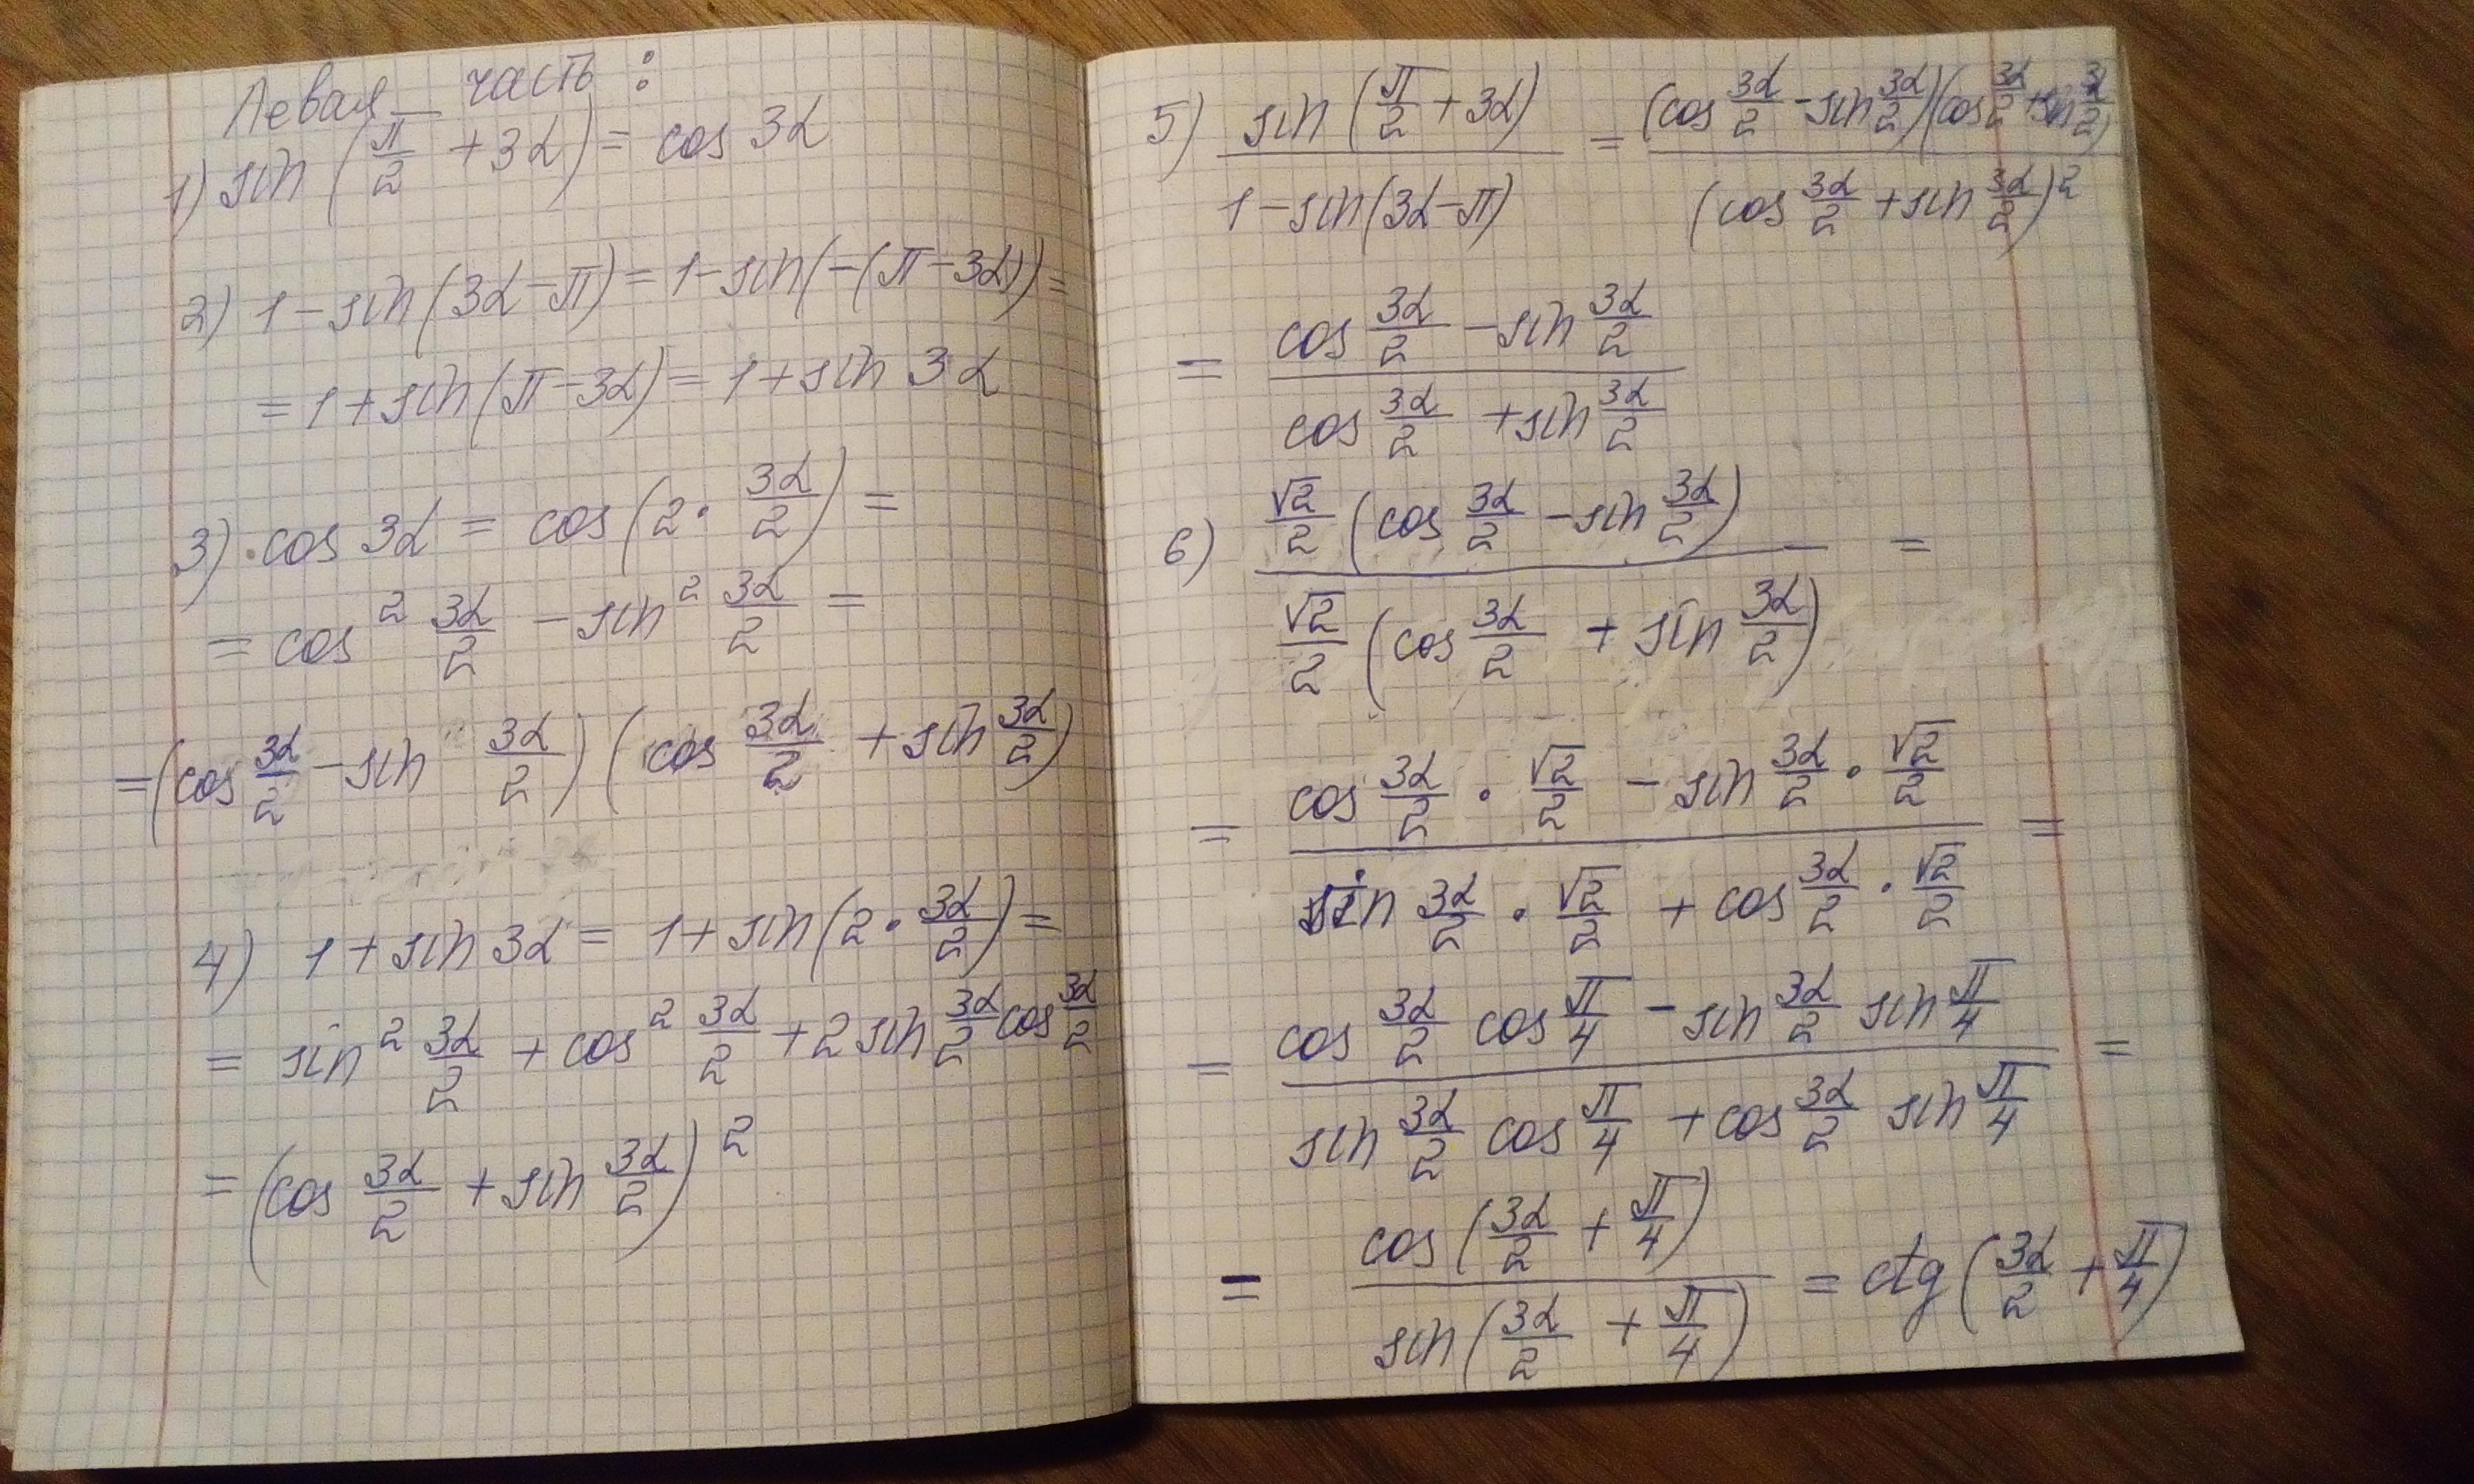 Левая часть:
1) sin(π/2 + 3α) = cos 3α
2) 1 - sin(3α - π) = 1 - sin(-(π - 3α)) =
= 1 + sin(π - 3α) = 1 + sin 3α
3) cos 3α = cos(2 · 3α/2) =
= cos² 3α/2 - sin² 3α/2 =
= (cos 3α/2 - sin 3α/2)(cos 3α/2 + sin 3α/2)
4) 1 + sin 3α = 1 + sin(2 · 3α/2) =
= sin² 3α/2 + cos² 3α/2 + 2 sin 3α/2 cos 3α/2
= (cos 3α/2 + sin 3α/2)²
5) sin(π/2 + 3α) / 1 - sin(3α - π) = (cos 3α/2 - sin 3α/2)(cos 3α/2 + sin 3α/2) / (cos 3α/2 + sin 3α/2)²
= cos 3α/2 - sin 3α/2 / cos 3α/2 + sin 3α/2
6) √2/2 (cos 3α/2 - sin 3α/2) / √2/2 (cos 3α/2 + sin 3α/2) =
= cos 3α/2 · √2/2 - sin 3α/2 · √2/2 / sin 3α/2 · √2/2 + cos 3α/2 · √2/2 =
= cos 3α/2 cos π/4 - sin 3α/2 sin π/4 / sin 3α/2 cos π/4 + cos 3α/2 sin π/4 =
= cos(3α/2 + π/4) / sin(3α/2 + π/4) = ctg(3α/2 + π/4)